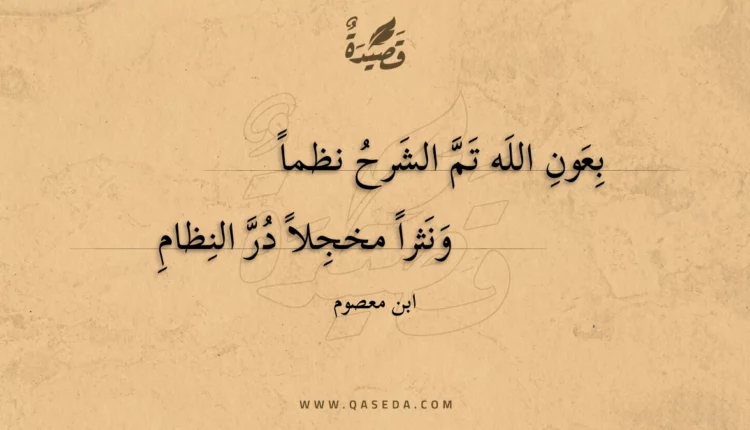 قَصِيْدَةٌ
بِعَونِ اللَه تَمَّ الشَرحُ نظماً
وَنَثراً مخجِلاً دُرَّ النِظامِ
ابن معصوم
WWW.QASEDA.COM